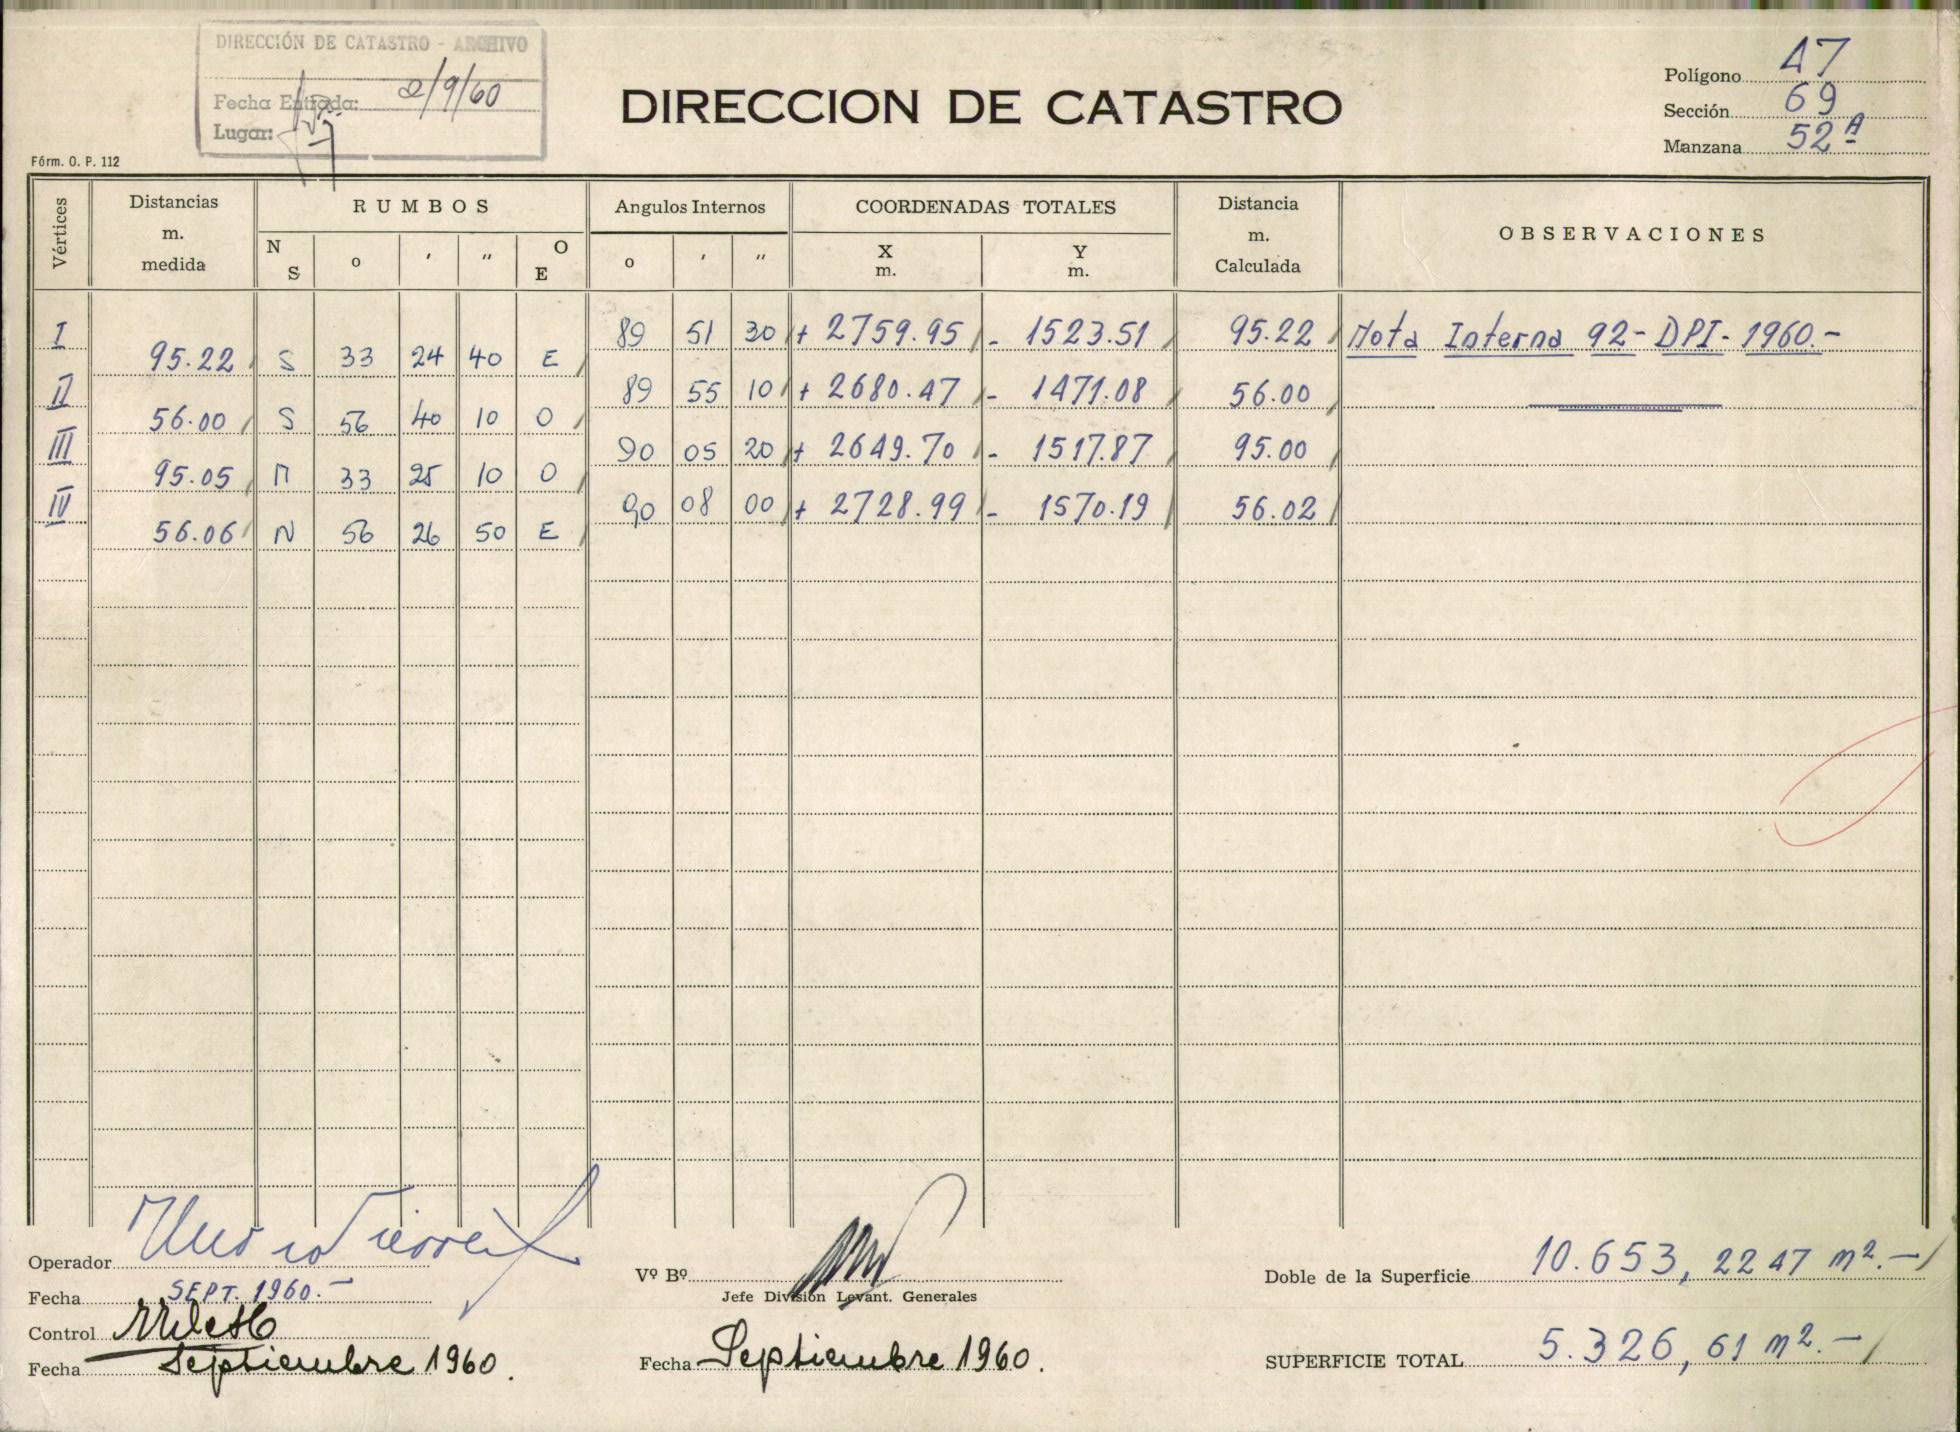 DIRECCIÓN DE CATASTRO - ARCHIVO
Fecha Entrada: 2/9/60
Lugar:
Fórm. O. P. 112
DIRECCION DE CATASTRO
Polígono 47
Sección 69
Manzana 52ª
Vértices Distancias m. medida RUMBOS Angulos Internos COORDENADAS TOTALES Distancia m. Calculada OBSERVACIONES
N S o ' " O E o ' " X m. Y m.
I 89 51 30 + 2759.95 - 1523.51 95.22 Nota Interna 92- DPI- 1960.-
95.22 S 33 24 40 E
II 89 55 10 + 2680.47 - 1471.08 56.00
56.00 S 56 40 10 O
III 90 05 20 + 2649.70 - 1517.87 95.00
95.05 N 33 25 10 O
IV 90 08 00 + 2728.99 - 1570.19 56.02
56.06 N 56 26 50 E
Operador
Fecha SEPT. 1960.-
Control
Fecha Septiembre 1960.
Vº Bº
Jefe División Levant. Generales
Fecha Septiembre 1960.
Doble de la Superficie 10.653,2247 m2.-
SUPERFICIE TOTAL 5.326,61 m2.-